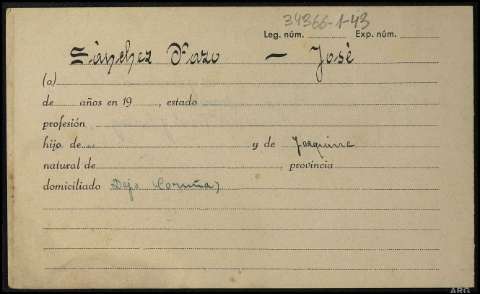 34366-1-43
Leg. núm. Exp. núm.
Sánchez Pazo — José
(a)
de años en 19 , estado
profesión
hijo de y de Joaquina
natural de , provincia
domiciliado Dejo (Coruña)
ARG